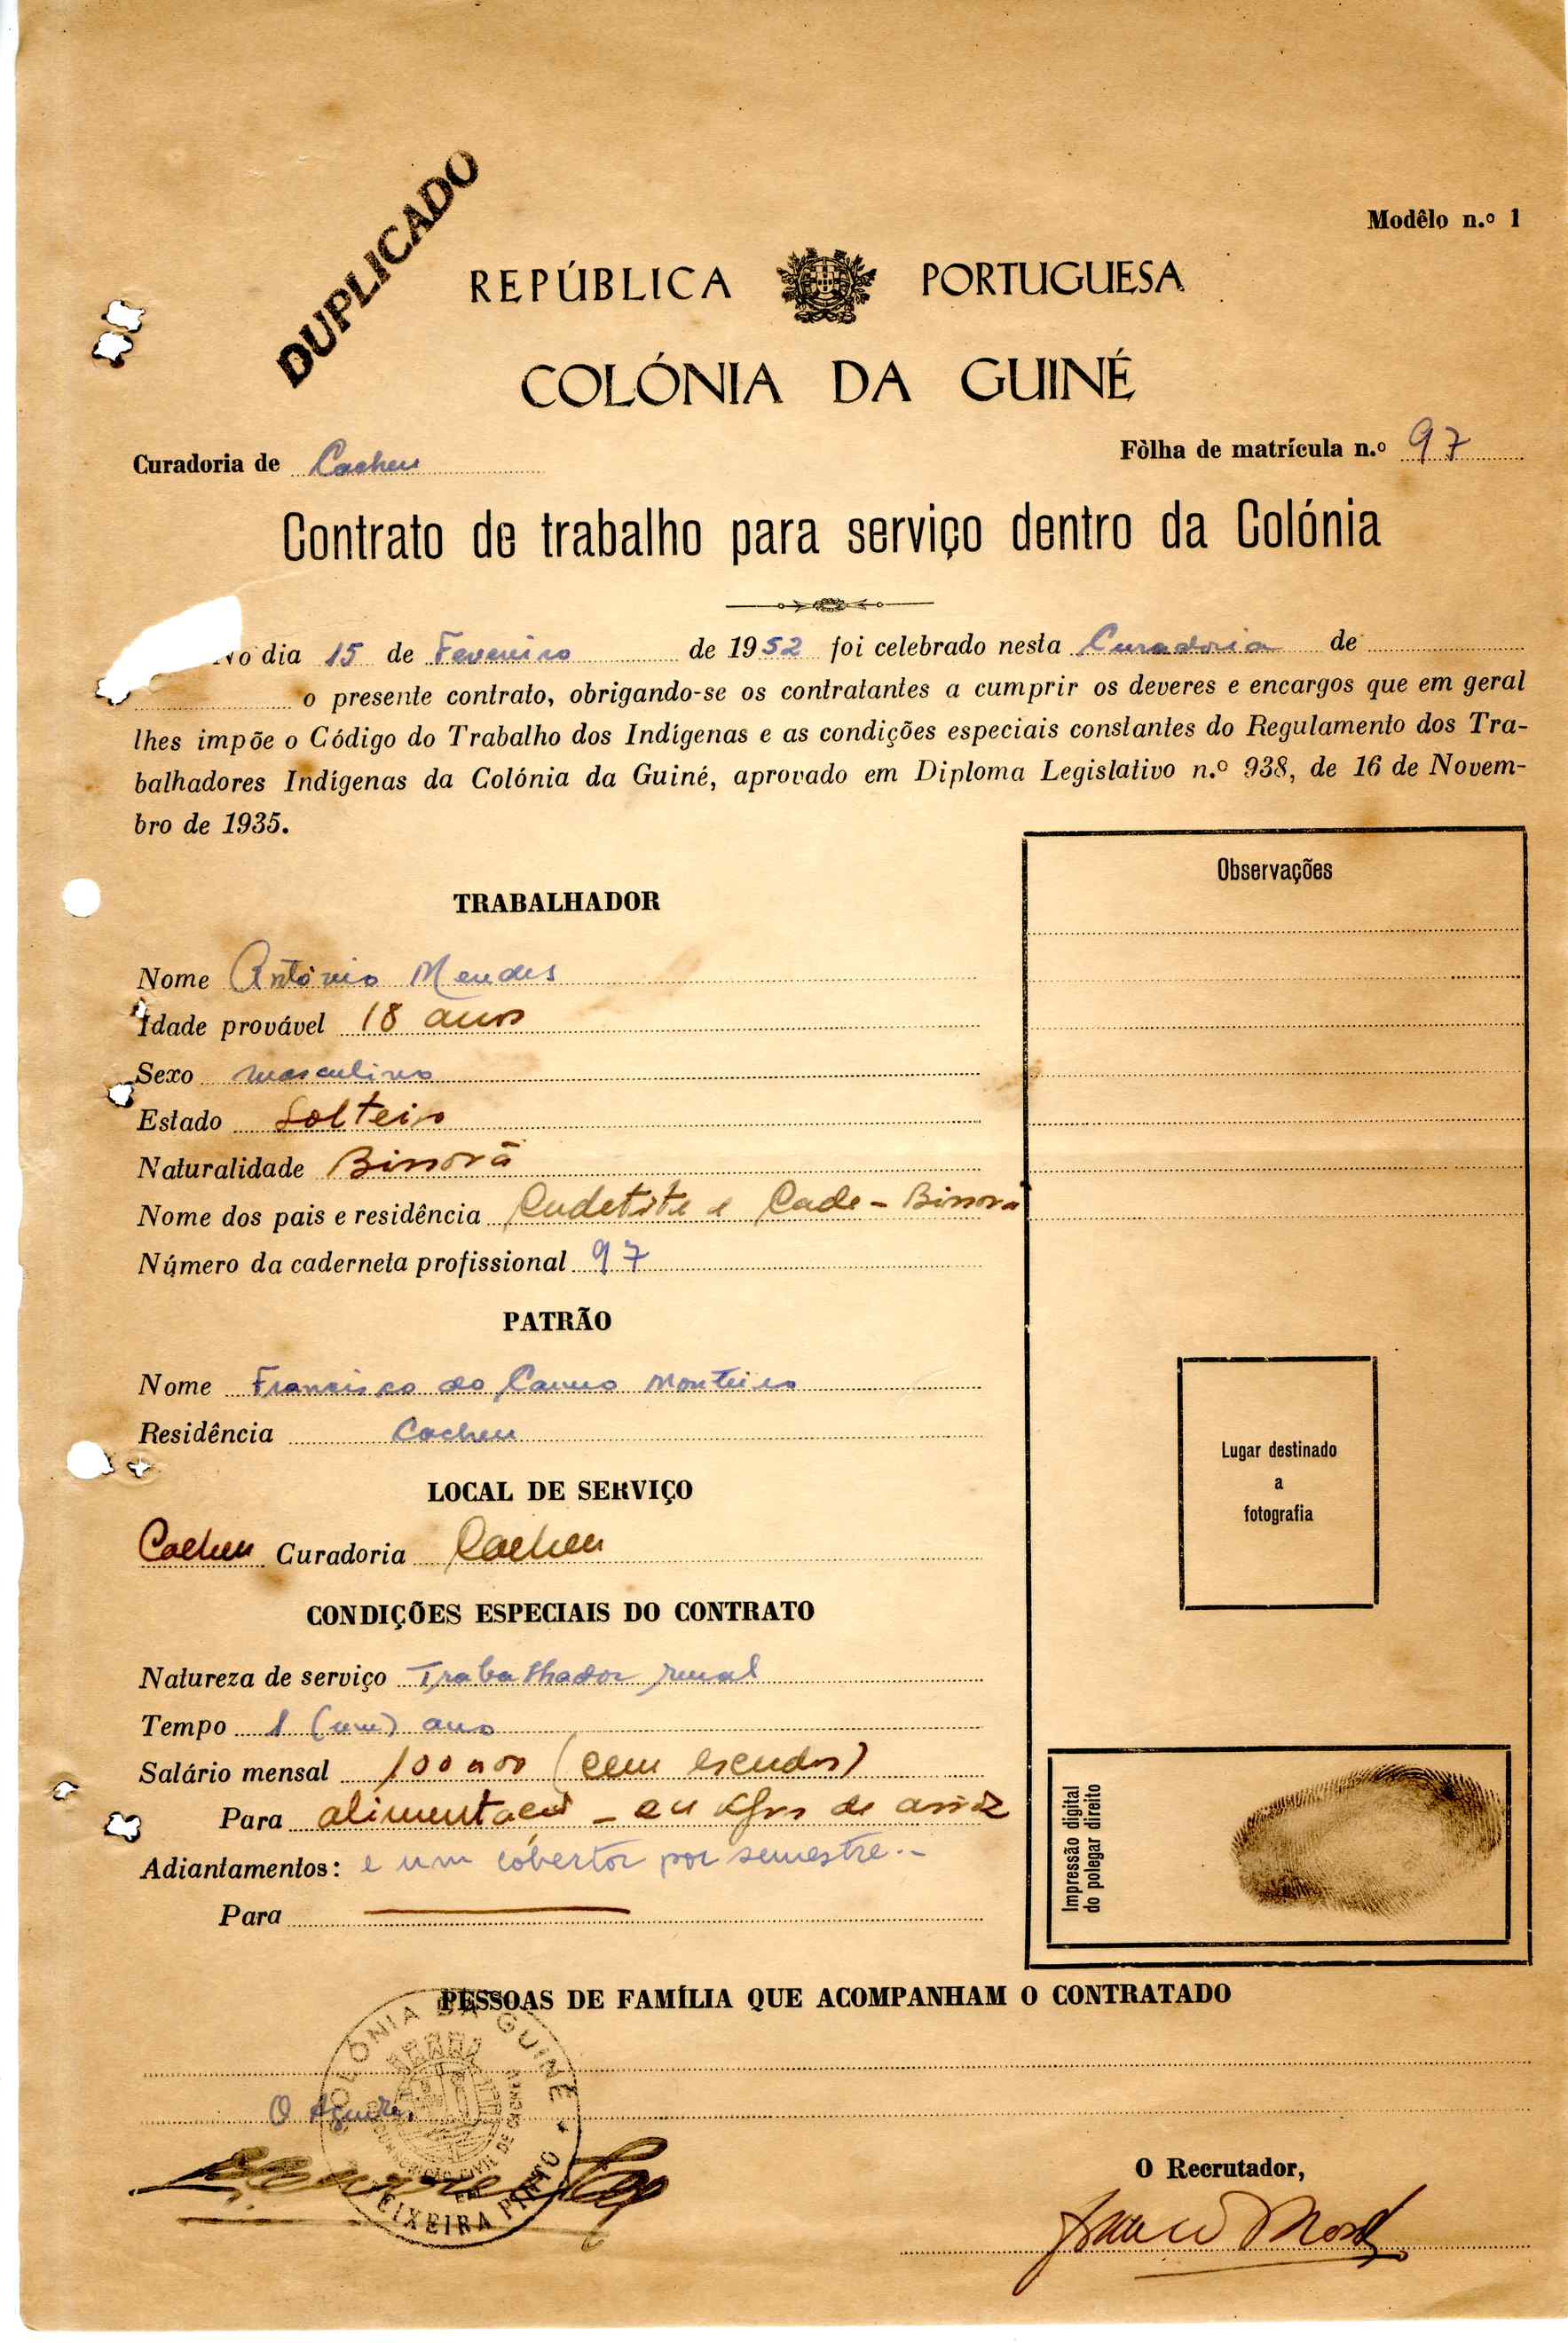 DUPLICADO
Modêlo n.º 1
REPÚBLICA PORTUGUESA
COLÓNIA DA GUINÉ
Curadoria de Cacheu
Fôlha de matrícula n.º 97
Contrato de trabalho para serviço dentro da Colónia
No dia 15 de Fevereiro de 1952 foi celebrado nesta Curadoria de
o presente contrato, obrigando-se os contratantes a cumprir os deveres e encargos que em geral
lhes impõe o Código do Trabalho dos Indígenas e as condições especiais constantes do Regulamento dos Tra-
balhadores Indígenas da Colónia da Guiné, aprovado em Diploma Legislativo n.º 938, de 16 de Novem-
bro de 1935.
Observações
TRABALHADOR
Nome António Mendes
Idade provável 18 anos
Sexo masculino
Estado Solteiro
Naturalidade Bissorã
Nome dos pais e residência e Cade - Bissorã
Número da caderneta profissional 97
PATRÃO
Nome Francisco do Carmo Monteiro
Residência Cacheu
LOCAL DE SERVIÇO
Cacheu Curadoria Cacheu
CONDIÇÕES ESPECIAIS DO CONTRATO
Natureza de serviço Trabalhador rural
Tempo 1 (um) ano
Salário mensal (cem escudos)
Para alimentação - de arroz
Adiantamentos: e um cobertor por semestre.-
Para
Lugar destinado
a
fotografia
Impressão digital
do polegar direito
PESSOAS DE FAMÍLIA QUE ACOMPANHAM O CONTRATADO
COLÓNIA DA GUINÉ
TEIXEIRA PINTO
O
O Recrutador,